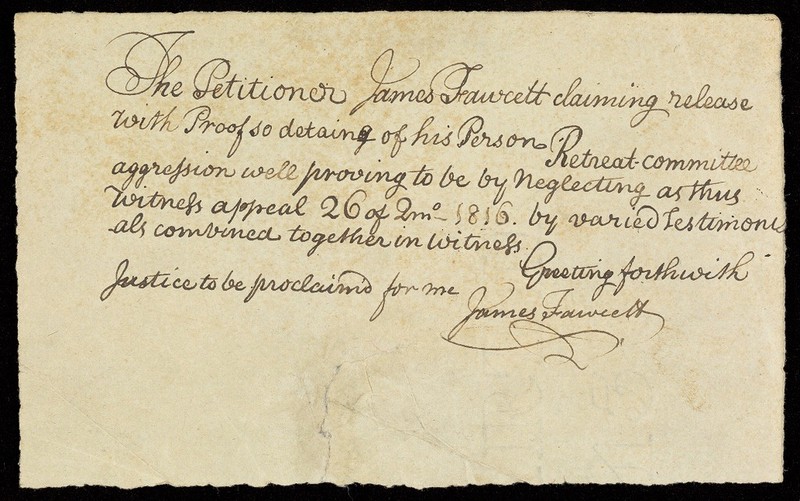 The Petitioner James Fawcett claiming release
with Proof so detaing of his Person Retreat committee
aggression well proving to be by Neglecting as thus
Witness appeal 26 of 2mo. 1816. by varied Testimoni
als combined together in Witness.
Greeting forthwith
Justice to be proclaimd for me
James Fawcett